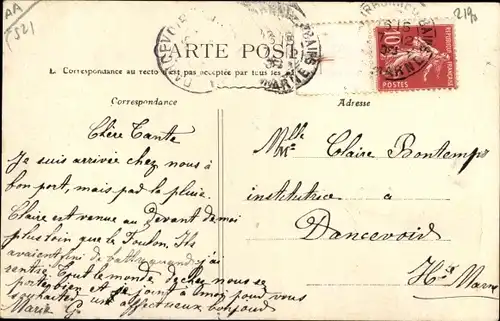 AA
521
2190
CARTE POSTALE
La Correspondance au recto n'est pas acceptée par tous les
Correspondance
Adresse
10
POSTES
MARNE
Chère Tante
Je suis arrivée chez nous à
bon port, mais pas la pluie.
Claire est venue au devant de moi
plus loin que le Toulon. Ils
avaient fini de battre quand j'ai
rentré. Tout le monde de chez nous se
porte bien et je joint à moi pour vous
souhaiter un affectueux bonjour
Marie G.
Mlle Claire Bontemps
institutrice à
Dancevoir
Hte Marne